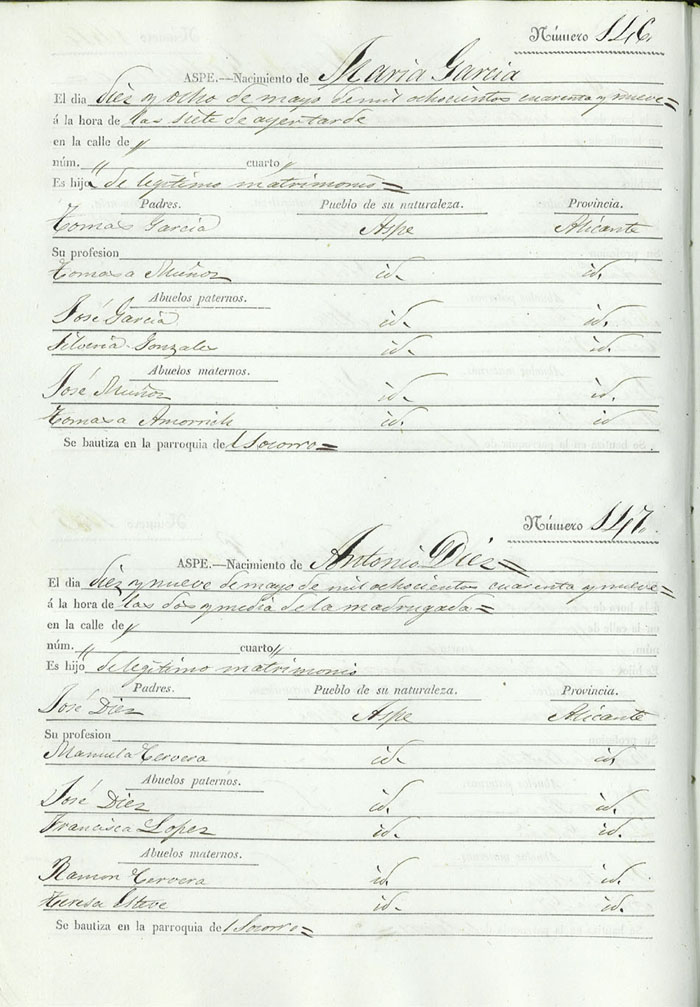 Número 146.
ASPE.—Nacimiento de Maria Garcia
El dia diez y ocho de mayo de mil ochocientos cuarenta y nueve=
á la hora de las siete de ayer tarde
en la calle de "
núm. " cuarto "
Es hijo de legitimo matrimonio=
Padres. Pueblo de su naturaleza. Provincia.
Tomas Garcia Aspe Alicante
Su profesion
Tomasa Muñoz id. id.
Abuelos paternos.
José Garcia id. id.
Silveria Gonzales id. id.
Abuelos maternos.
José Muñoz id. id.
Tomasa Amorrich id. id
Se bautiza en la parroquia del Socorro=
Número 147.
ASPE.—Nacimiento de Antonio Diez=
El dia diez y nueve de mayo de mil ochocientos cuarenta y nueve=
á la hora de las dos y media de la madrugada=
en la calle de "
núm. " cuarto "
Es hijo de legitimo matrimonio
Padres. Pueblo de su naturaleza. Provincia.
José Diez Aspe Alicante
Su profesion
Manuela Cervera id. id.
Abuelos paternos.
José Diez id. id.
Francisca Lopez id. id.
Abuelos maternos.
Ramon Cervera id. id.
Teresa Esteve id. id.
Se bautiza en la parroquia del Socorro=